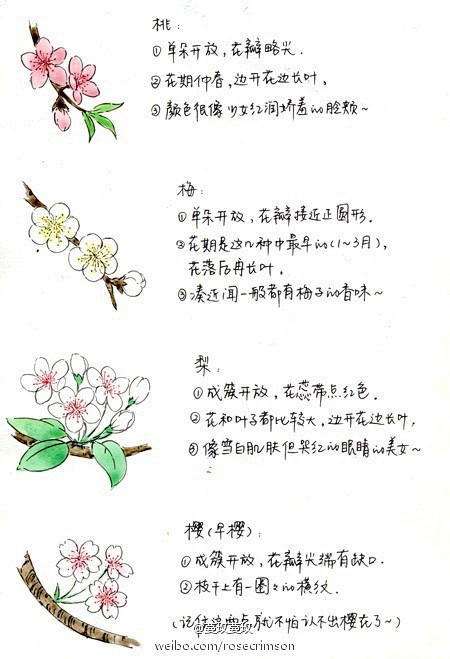 桃:
①单朵开放,花瓣略尖.
②花期仲春,边开花边长叶,
③颜色很像少女红润娇羞的脸颊~
梅:
①单朵开放,花瓣接近正圆形.
②花期是这几种中最早的(1~3月),
花落后再长叶,
③凑近闻一般都有梅子的香味~
梨:
①成簇开放,花蕊带点红色.
②花和叶子都比较大,边开花边长叶,
③像雪白肌肤但哭红的眼睛的美女~
樱(早樱):
①成簇开放,花瓣尖端有缺口.
②枝干上有一圈々的横纹.
(记住这两点就不怕认不出樱花了~)
@蔓玫蔓玫
weibo.com/rosecrimson